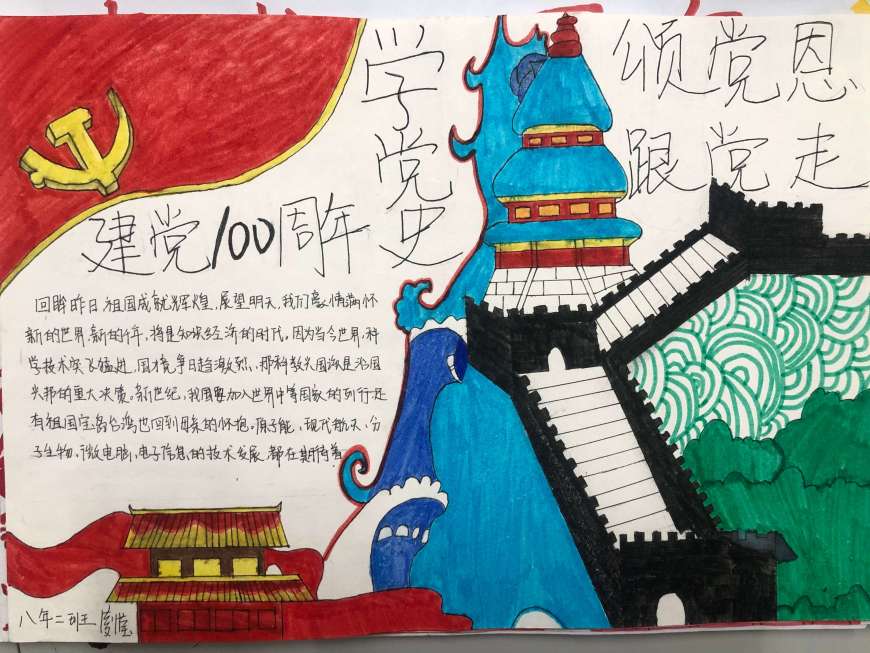 学党史
颂党恩
跟党走
建党100周年
回眸昨日,祖国成就辉煌,展望明天,我们豪情满怀
新的世界,新的年,将是知识经济的时代,因为当今世界,科
学技术突飞猛进,国才竞争日趋激烈,那科教兴国就是治国
兴邦的重大决策。新世纪,我国要加入世界中等国家的列行是
有祖国宝岛台湾也回到母亲的怀抱,原子能,现代航天,分
子生物,微电脑,电子信息的技术发展,都在期待着
八年二班王